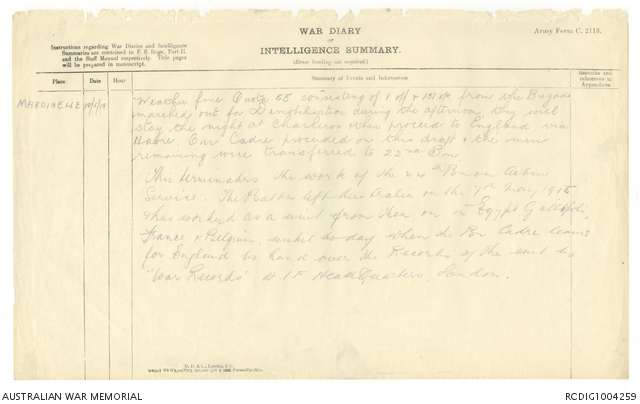 WAR DIARY
OF
INTELLIGENCE SUMMARY.
(Erase heading not required.)
Army Form C. 2118.
Instructions regarding War Diaries and Intelligence
Summaries are contained in F. S. Regs., Part II.
and the Staff Manual respectively. Title pages
will be prepared in manuscript.
Place Date Hour Summary of Events and Information Remarks and references to Appendices
MARCINELLE
Weather fine Quota 58 consisting of 1 off & 151 from the Brigade
marched out for demobilization during the afternoon, they will
stay the night at Charleroi then proceed to England via
Havre Our Cadre proceeded on this draft & the men
remaining were transferred to 22nd Bn
This terminates the work of the 24th Bn on Active
Service. The Battn left Australia on the May 1915
& has worked as a unit from then on in Egypt Gallipoli,
France & Belgium, until to-day when the Bn Cadre leaves
for England to hand over the Records of the unit to
"War Records" A.I.F Headquarters, London.
AUSTRALIAN WAR MEMORIAL
RCDIG1004259